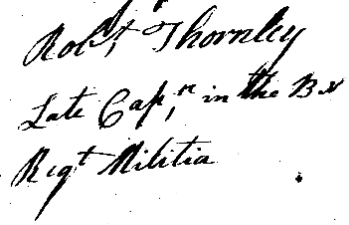 Robt, Thornley
Late Cap,n in the Bx
Regt Militia